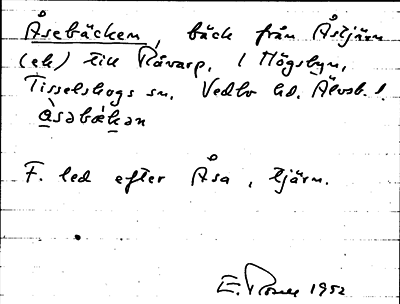 Åsebäcken, bäck från Åstjärn
(ek) till Råvarp, i Högsbyn,
Tisselskogs sn, Vedbo hd. Älvsb. l.
ὰsəbækən
F. led efter Åsa, tjärn.
E. 1952